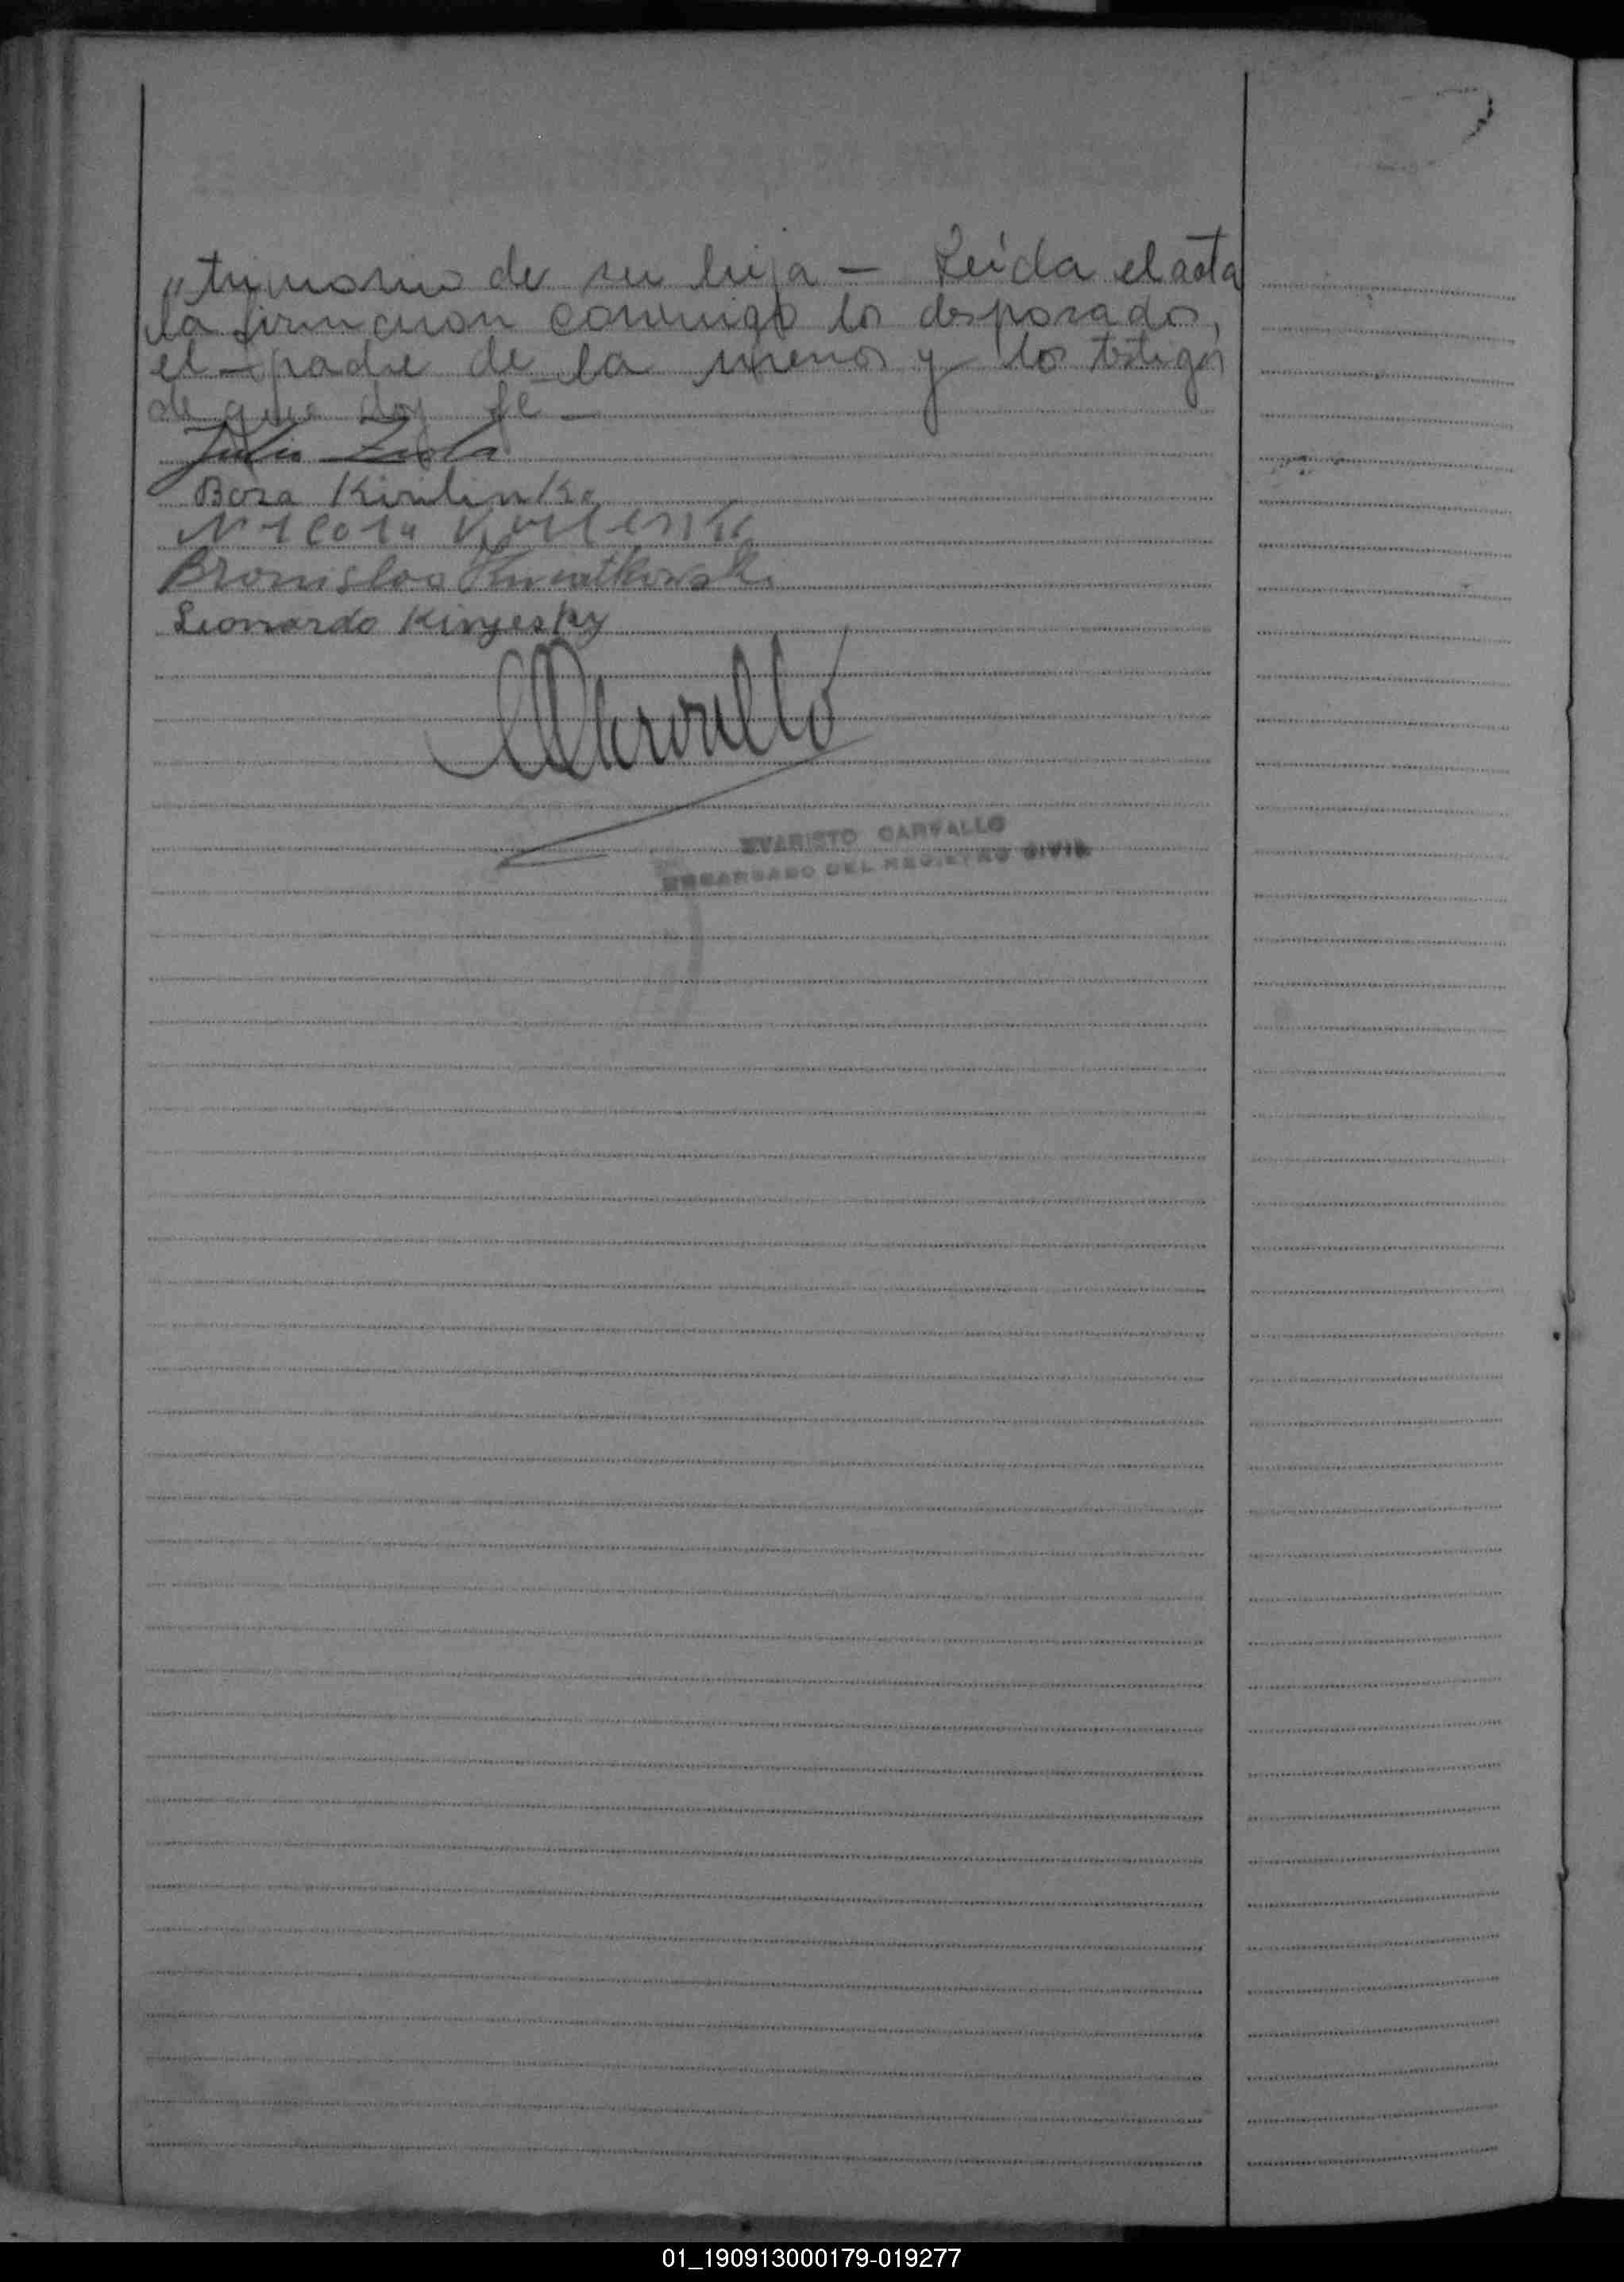 "trimonio de su hija — Leída el acta
la firmaron conmigo los desposados,
el padre de la menor y los testigos
de que doy fe —
Julio
Boza Kirilinko
Nicola
Bronislao Kwiatkowski
Leonardo Kinjesky
Carvallo
EVARISTO CARVALLO
ENCARGADO DEL REGISTRO CIVIL
01_190913000179-019277